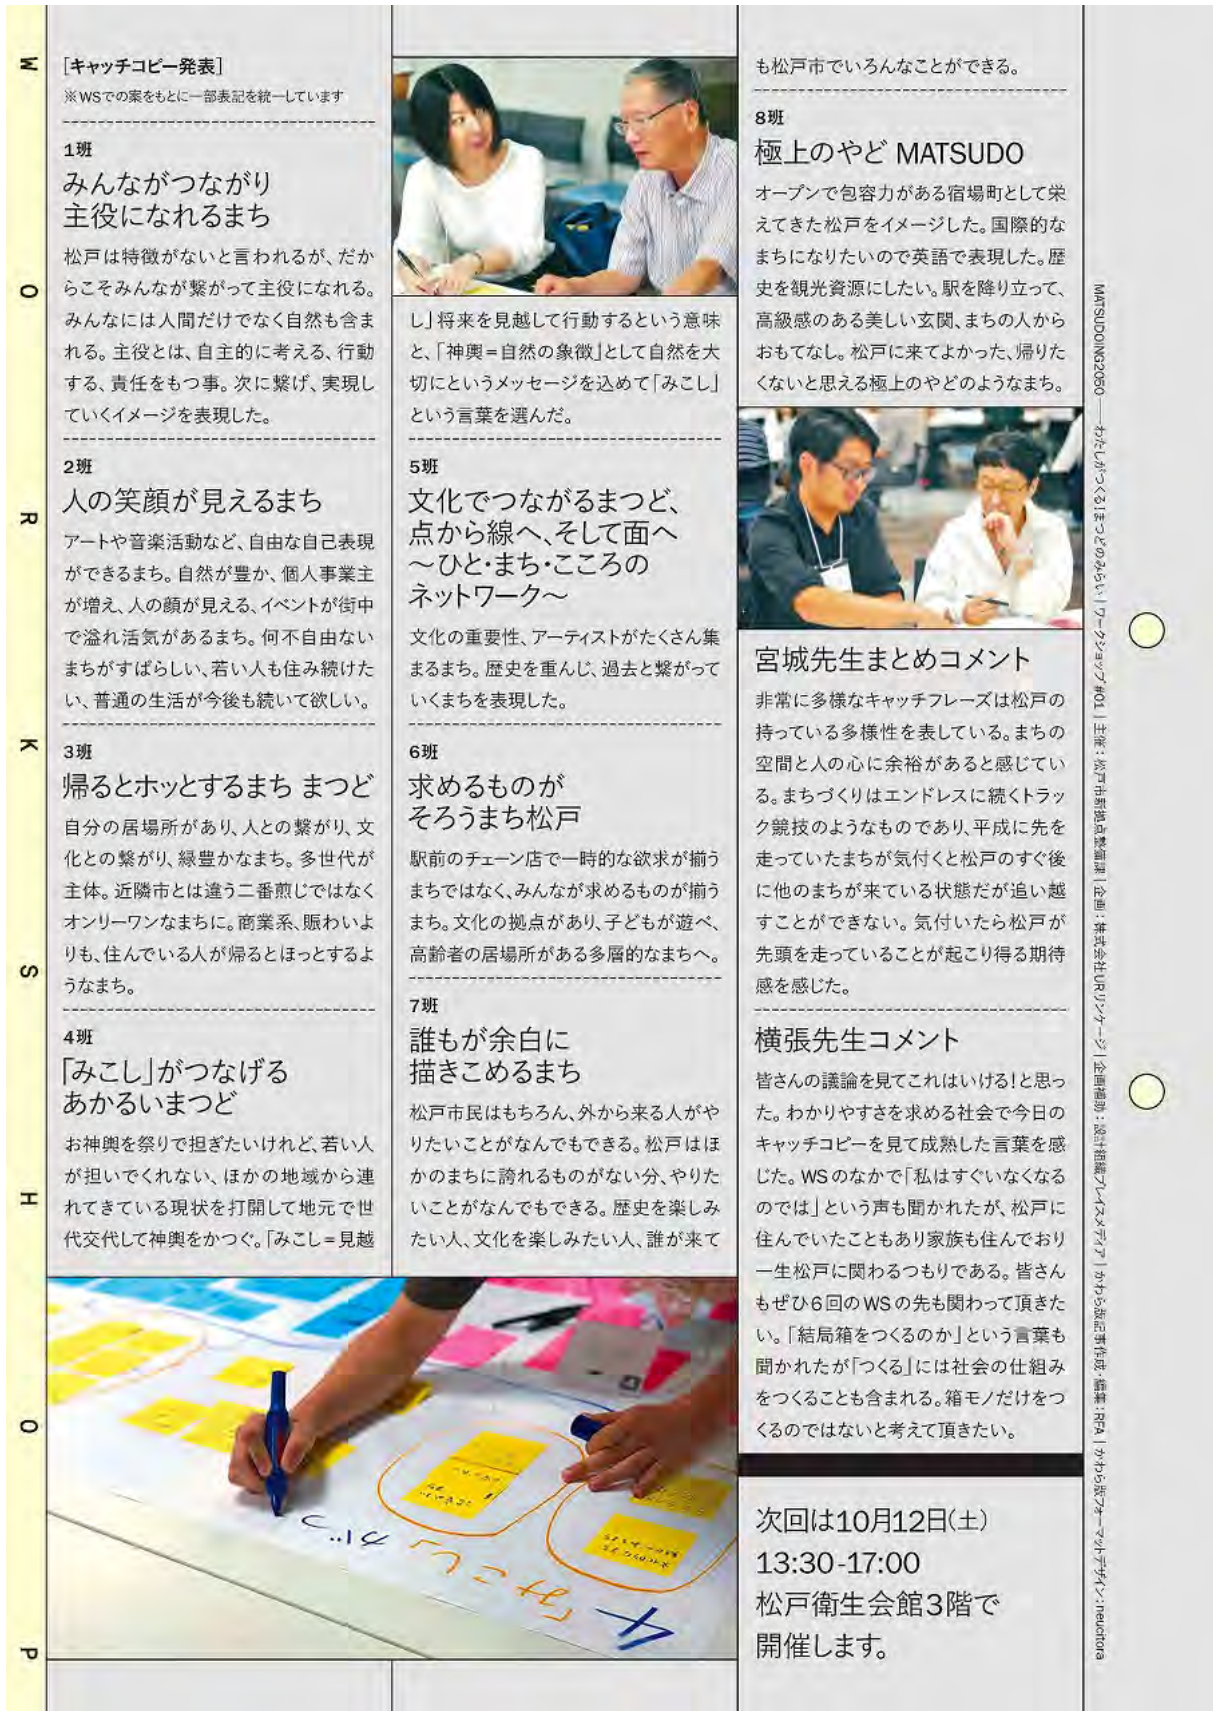 WORKSHOP
[キャッチコピー発表]
※WSでの案をもとに一部表記を統一しています
1班
みんながつながり
主役になれるまち
松戸は特徴がないと言われるが、だか
らこそみんなが繋がって主役になれる。
みんなには人間だけでなく自然も含ま
れる。主役とは、自主的に考える、行動
する、責任をもつ事。次に繋げ、実現し
ていくイメージを表現した。
2班
人の笑顔が見えるまち
アートや音楽活動など、自由な自己表現
ができるまち。自然が豊か、個人事業主
が増え、人の顔が見える、イベントが街中
で溢れ活気があるまち。何不自由ない
まちがすばらしい、若い人も住み続けた
い、普通の生活が今後も続いて欲しい。
3班
帰るとホッとするまち まつど
自分の居場所があり、人との繋がり、文
化との繋がり、緑豊かなまち。多世代が
主体。近隣市とは違う二番煎じではなく
オンリーワンなまちに。商業系、賑わいよ
りも、住んでいる人が帰るとほっとするよ
うなまち。
4班
「みこし」がつなげる
あかるいまつど
お神輿を祭りで担ぎたいけれど、若い人
が担いでくれない、ほかの地域から連
れてきている現状を打開して地元で世
代交代して神輿をかつぐ。「みこし=見越
し」将来を見越して行動するという意味
と、「神輿=自然の象徴」として自然を大
切にというメッセージを込めて「みこし」
という言葉を選んだ。
5班
文化でつながるまつど、
点から線へ、そして面へ
〜ひと・まち・こころの
ネットワーク〜
文化の重要性、アーティストがたくさん集
まるまち。歴史を重んじ、過去と繋がって
いくまちを表現した。
6班
求めるものが
そろうまち松戸
駅前のチェーン店で一時的な欲求が揃う
まちではなく、みんなが求めるものが揃う
まち。文化の拠点があり、子どもが遊べ、
高齢者の居場所がある多層的なまちへ。
7班
誰もが余白に
描きこめるまち
松戸市民はもちろん、外から来る人がや
りたいことがなんでもできる。松戸はほ
かのまちに誇れるものがない分、やりた
いことがなんでもできる。歴史を楽しみ
たい人、文化を楽しみたい人、誰が来て
も松戸市でいろんなことができる。
8班
極上のやど MATSUDO
オープンで包容力がある宿場町として栄
えてきた松戸をイメージした。国際的な
まちになりたいので英語で表現した。歴
史を観光資源にしたい。駅を降り立って、
高級感のある美しい玄関、まちの人から
おもてなし。松戸に来てよかった、帰りた
くないと思える極上のやどのようなまち。
宮城先生まとめコメント
非常に多様なキャッチフレーズは松戸の
持っている多様性を表している。まちの
空間と人の心に余裕があると感じてい
る。まちづくりはエンドレスに続くトラッ
ク競技のようなものであり、平成に先を
走っていたまちが気付くと松戸のすぐ後
に他のまちが来ている状態だが追い越
すことができない。気付いたら松戸が
先頭を走っていることが起こり得る期待
感を感じた。
横張先生コメント
皆さんの議論を見てこれはいける!と思っ
た。わかりやすさを求める社会で今日の
キャッチコピーを見て成熟した言葉を感
じた。WSのなかで「私はすぐいなくなる
のでは」という声も聞かれたが、松戸に
住んでいたこともあり家族も住んでおり
一生松戸に関わるつもりである。皆さん
もぜひ6回のWSの先も関わって頂きた
い。「結局箱をつくるのか」という言葉も
聞かれたが「つくる」には社会の仕組み
をつくることも含まれる。箱モノだけをつ
くるのではないと考えて頂きたい。
次回は10月12日(土)
13:30-17:00
松戸衛生会館3階で
開催します。
MATSUDOING2050——わたしがつくる!まつどのみらい|ワークショップ#01|主催:松戸市新拠点整備課|企画:株式会社URリンケージ|企画補助:設計組織プレイスメディア|かわら版記事作成・編集:RFA|かわら版フォーマットデザイン:neucitora
4
「みこし」がつ